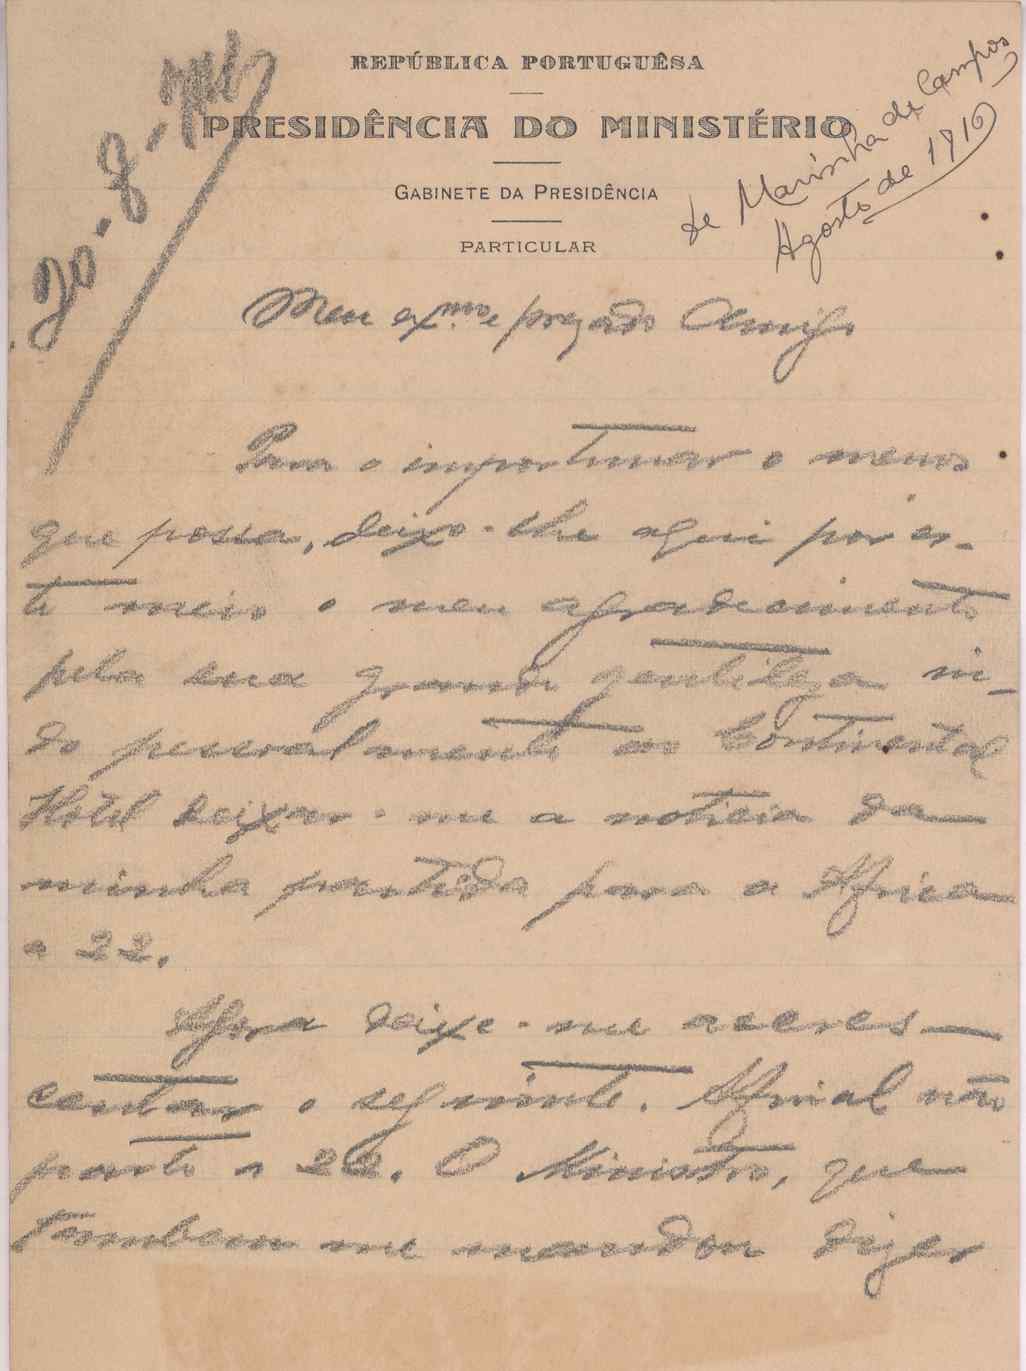 REPÚBLICA PORTUGUÊSA
PRESIDÊNCIA DO MINISTÉRIO
GABINETE DA PRESIDÊNCIA
PARTICULAR
de Marinha de Campos
Agosto de 1916
20-8-916
Meu ex.mo e prezado Amigo
Para o importunar o menos
que possa, deixo-lhe aqui por es-
te meio o meu agradecimento
pela sua grande gentileza in-
do pessoalmente ao Continental
Hotel deixar-me a noticia da
minha partida para a Africa
a 22.
Agora deixe-me acres-
centar o seguinte. Afinal não
parto a 22. O Ministro, que
tambem me mandou dizer